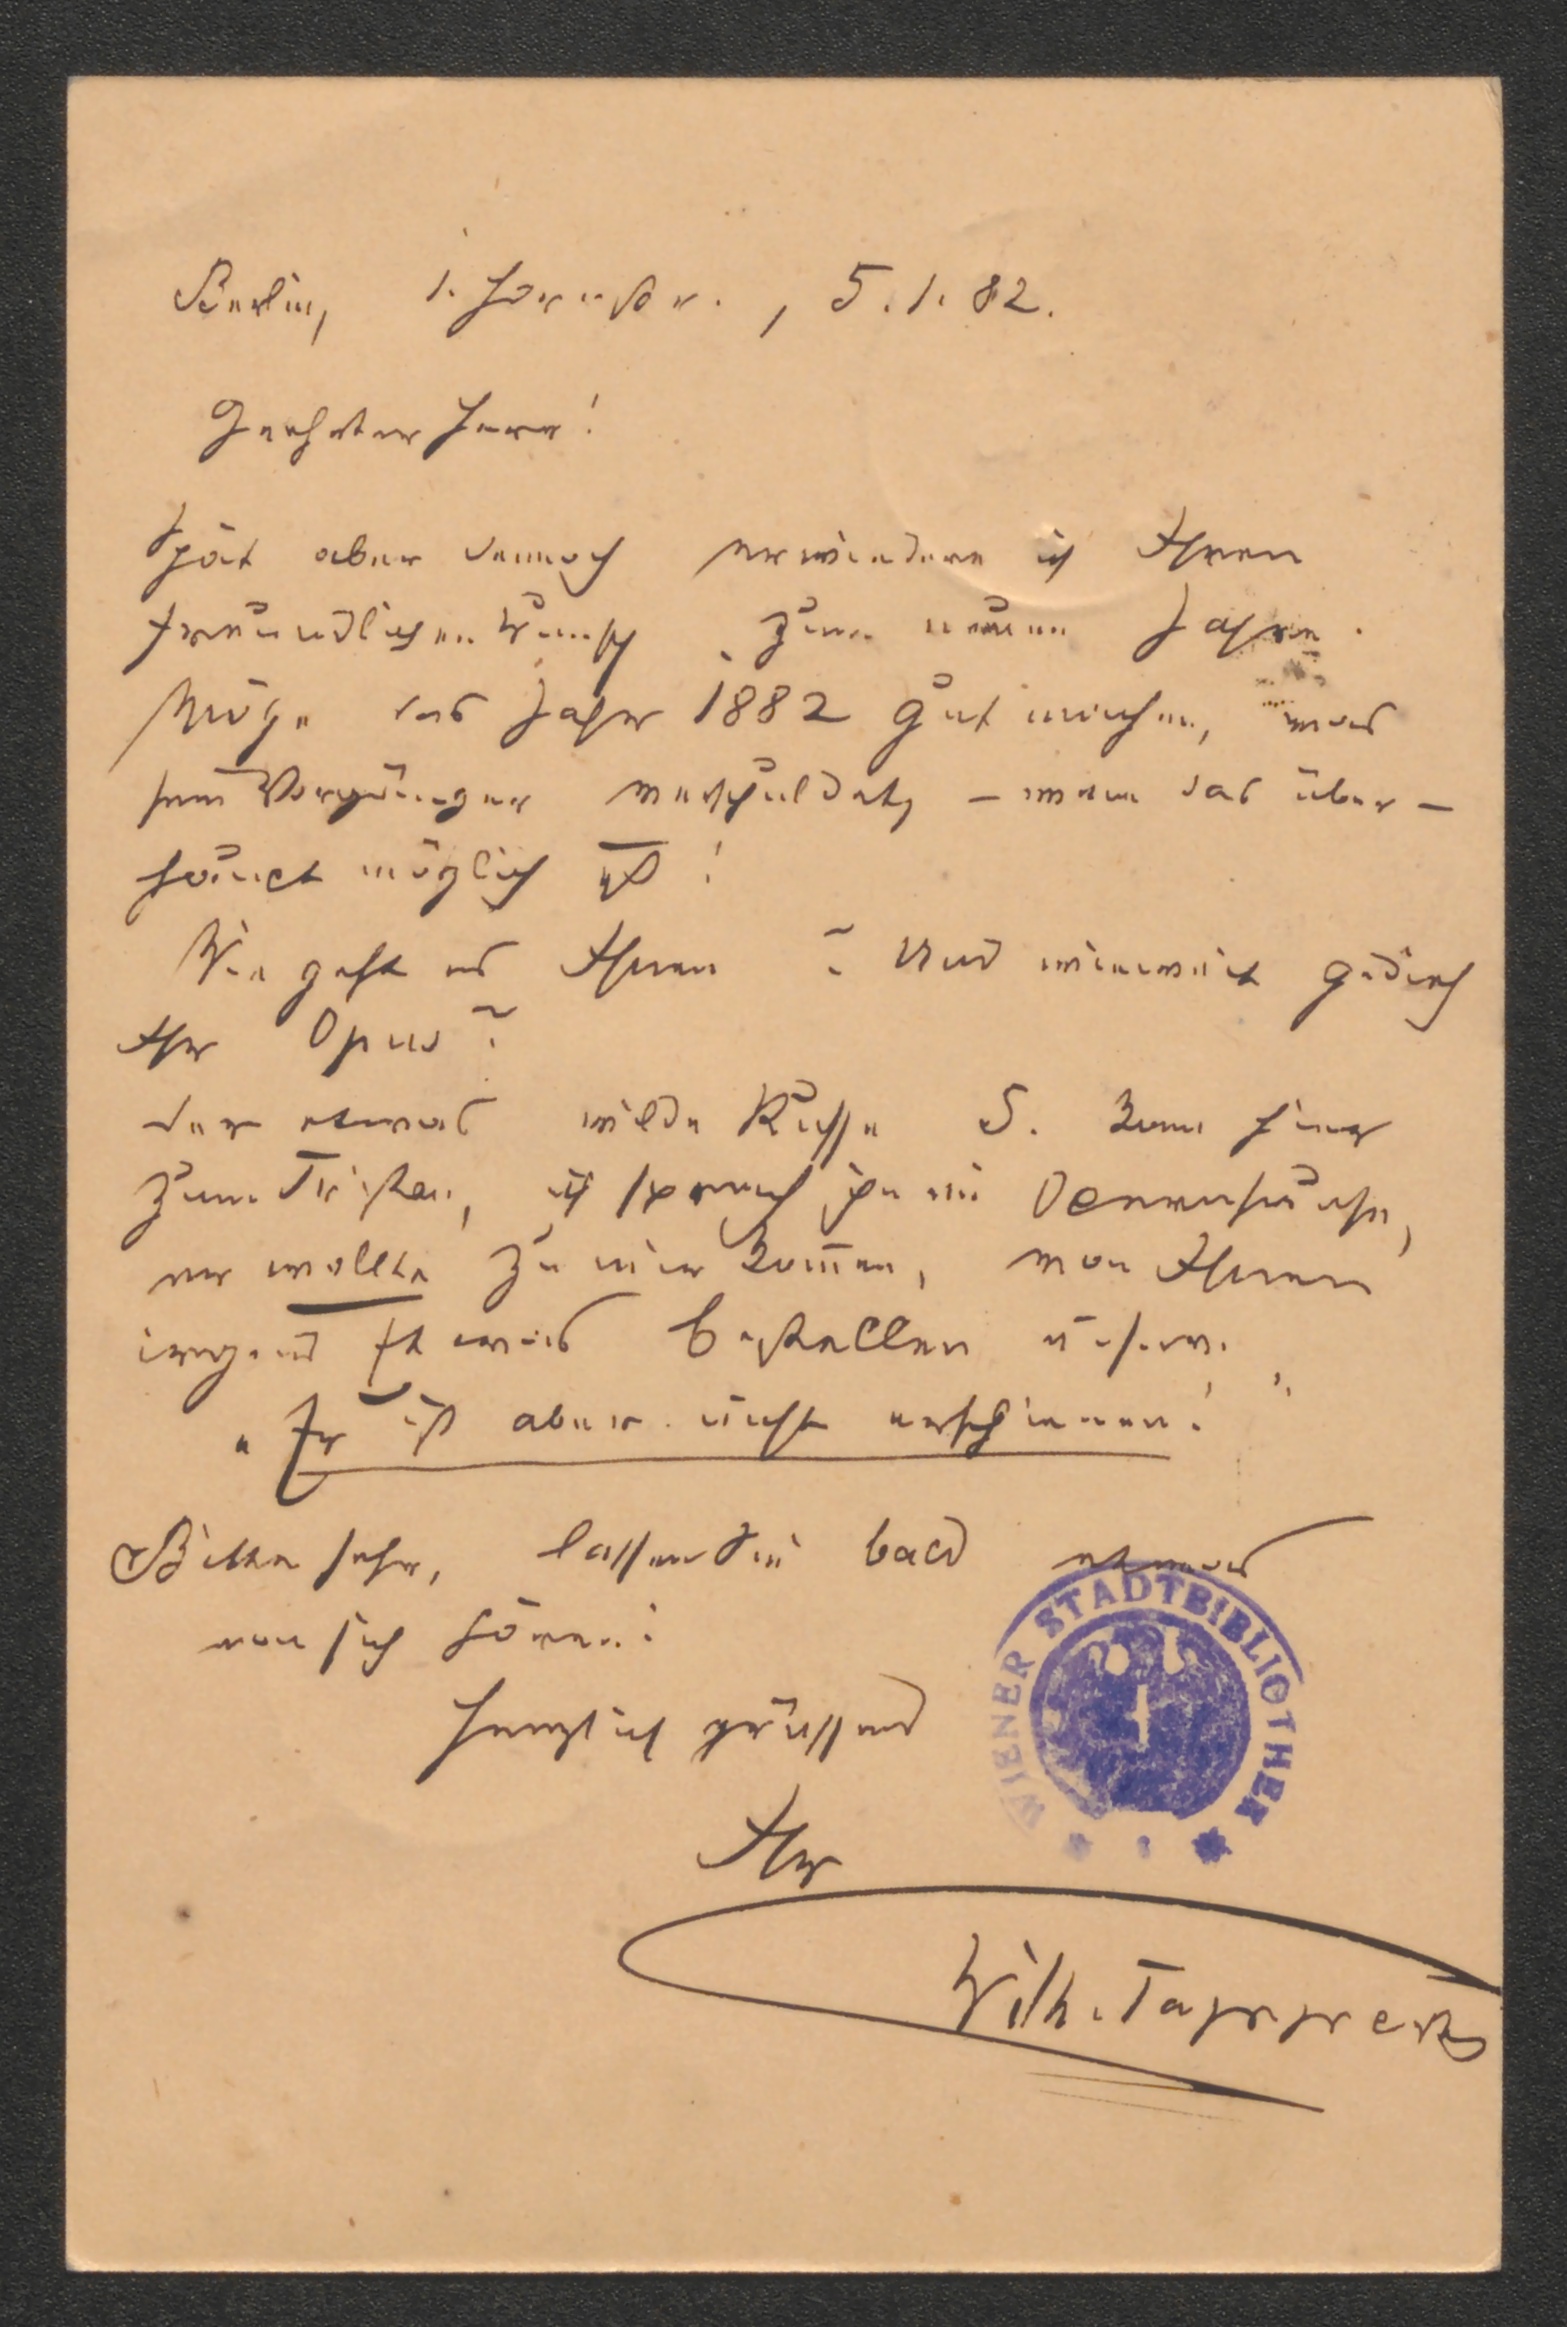 Berlin, 1. Hornstr., 5.1.82.
Geehrter Herr!
Spät aber dennoch erwiedere ich Ihren
freundlichen Wunsch zum neuen Jahre.
Möge das Jahr 1882 gut machen, was
sein Vorgänger verschuldet, – wenn das über-
haupt möglich ist!
Wie geht es Ihnen? Und wieweit gedieh
Ihr Opus?
Der etwas wilde Russe S. kam hier
zum Tristan, ich sprach ihn im Opernhause,
er wollte zu mir kom̄en, von Ihnen
irgend Etwas bestellen u.s.w.
„Er ist aber nicht erschienen!"
Bitte sehr, lassen Sie bald etwas
von sich hören!
Herzlich grüssend
Ihr
Wilh. Tappert
WIENER STADTBIBLIOTHEK